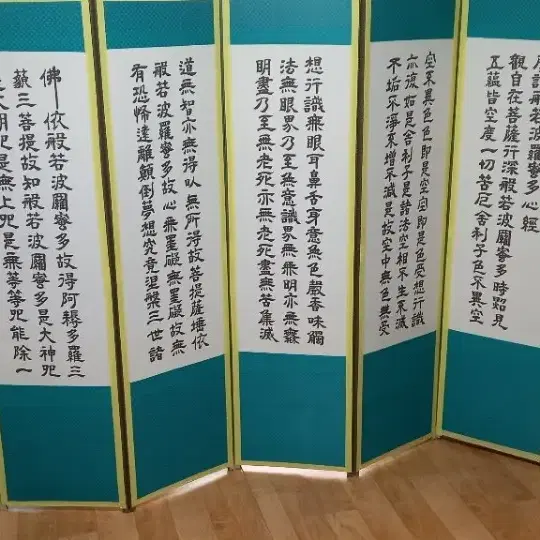 訶般若波羅蜜多心經
觀自在菩薩行深般若波羅蜜多時照見
五蘊皆空度一切苦厄舍利子色不異空
空不異色色即是空空即是色受想行識
亦復如是舍利子是諸法空相不生不滅
不垢不淨不增不減是故空中無色無受
想行識無眼耳鼻舌身意無色聲香味觸
法無眼界乃至無意識界無無明亦無無
明盡乃至無老死亦無老死盡無苦集滅
道無智亦無得以無所得故菩提薩埵依
般若波羅蜜多故心無罣礙無罣礙故無
有恐怖遠離顛倒夢想究竟涅槃三世諸
佛依般若波羅蜜多故得阿耨多羅三
藐三菩提故知般若波羅蜜多是大神呪
是大明呪是無上呪是無等等呪能除一